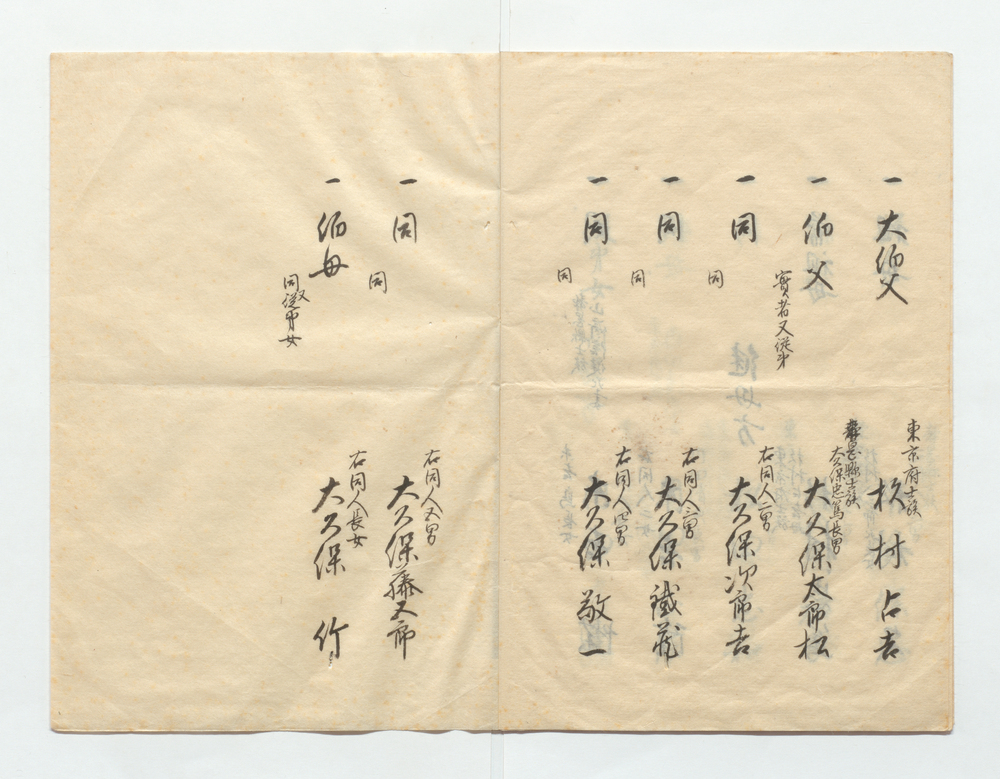 一 大伯父
東京府士族
杉村占吉
一 伯父
實者又従弟
静岡縣士族
大久保忠篤長男
大久保太郎松
一 同
同
右同人二男
大久保次郎吉
一 同
同
右同人三男
大久保鐵藏
一 同
同
右同人四男
大久保敬一
一 同
同
右同人五男
大久保藤五郎
一 伯母
同又従弟女
右同人長女
大久保 竹